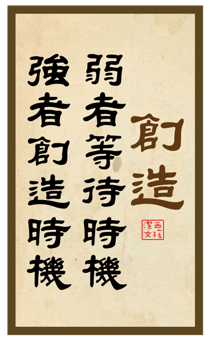 創造
弱者等待時機
強者創造時機